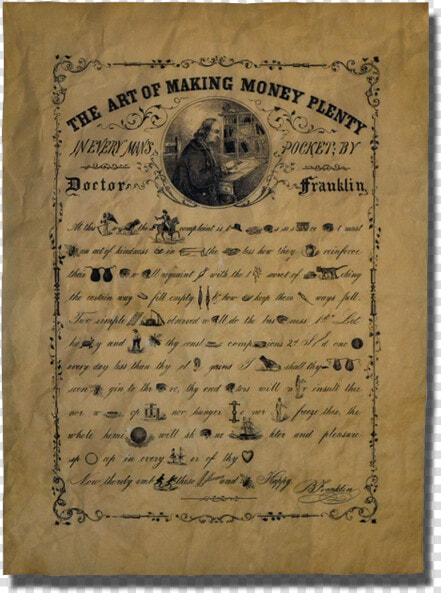 THE ART OF MAKING MONEY PLENTY
IN EVERY MAN'S POCKET; BY
Doctor Franklin
At this the complaint is t s m s ce t most
an act of kindness in the less how they reinforce
their w all acquaint with the t secret of ching
the certain way fill empty & how keep them ways full.
Two simple observed w ll do the bus mess. 1st Let
ty and thy const companions 2d. S d one
every day less than thy cl gains T shall thy
soon gin to thr ve, thy cred tors will r insult thee
nor w op nor hunger e nor freeze thee, the
whole hemi will sh ne hter and pleasure
sp op in every er of thy
Now thereby emb these and Happy.
B Franklin